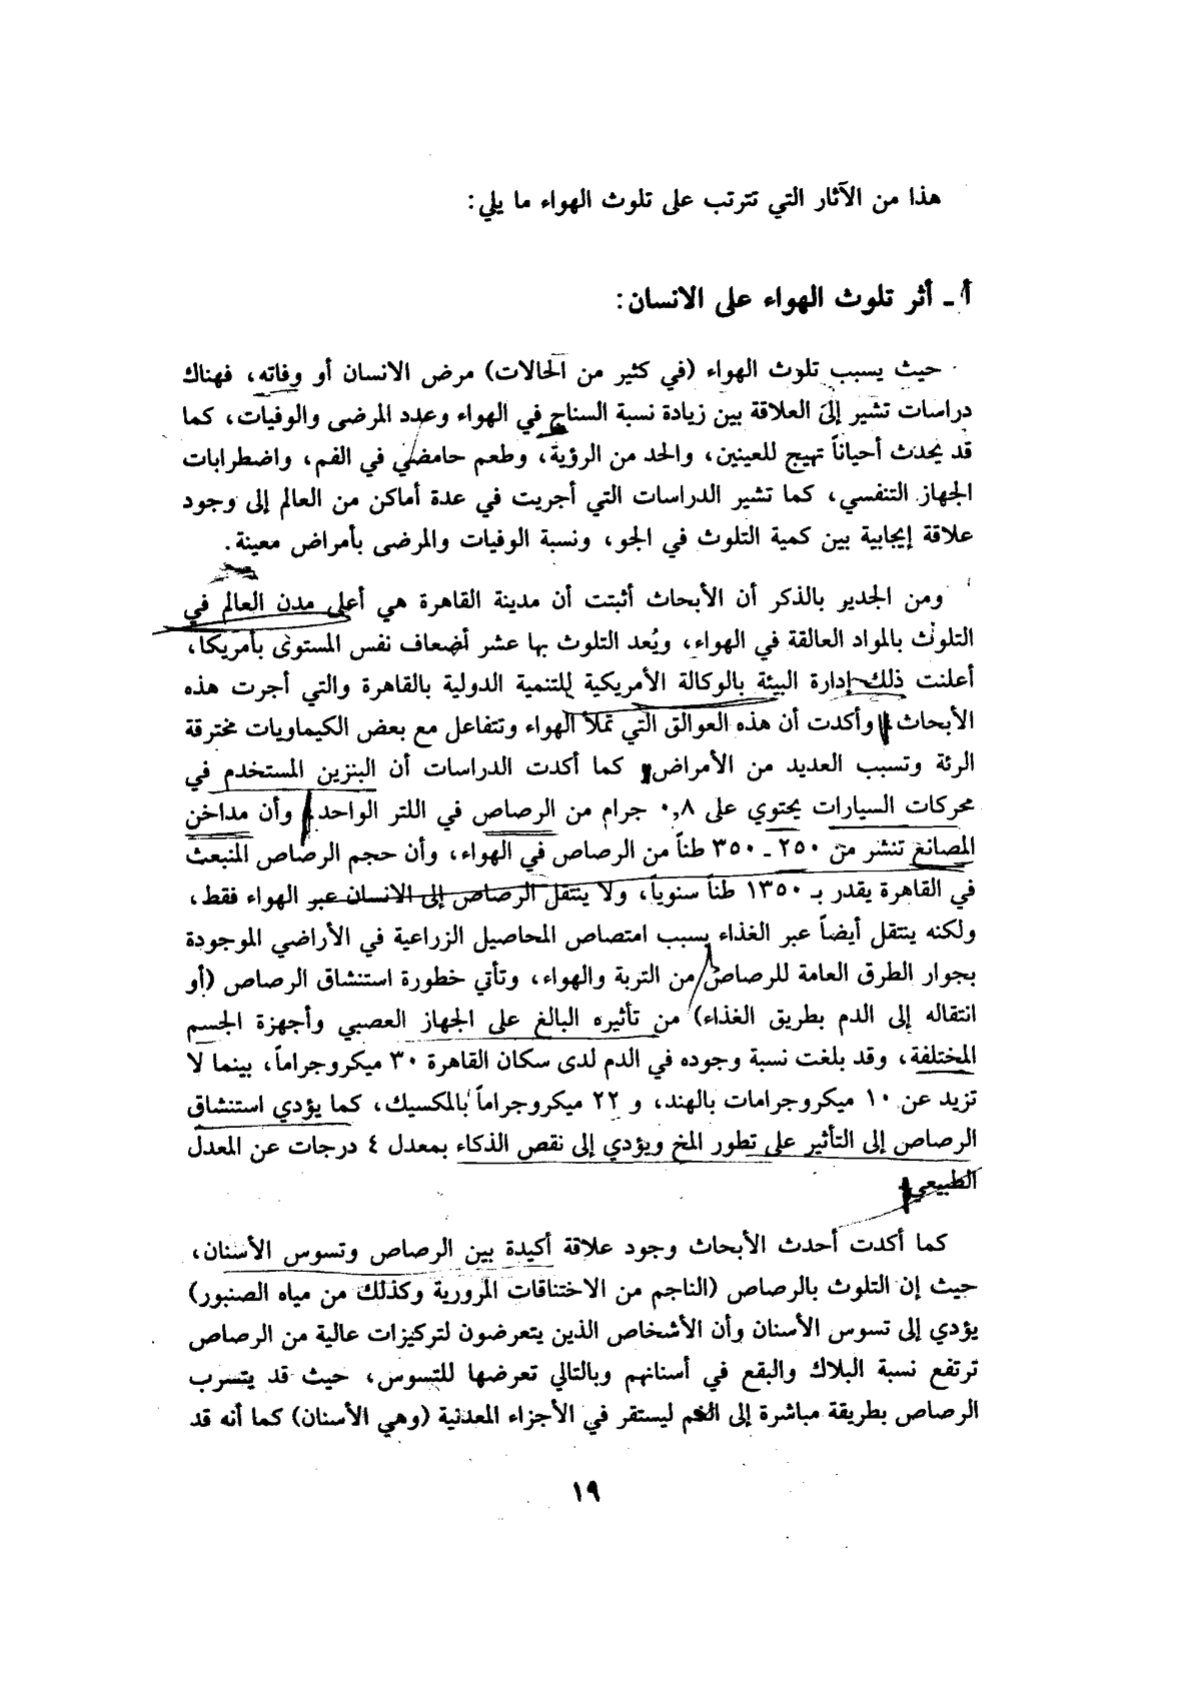 هذا من الآثار التي تترتب على تلوث الهواء ما يلي:
أ ـ أثر تلوث الهواء على الانسان:
حيث يسبب تلوث الهواء (في كثير من الحالات) مرض الانسان أو وفاته، فهناك
دراسات تشير إلى العلاقة بين زيادة نسبة السناج في الهواء وعدد المرضى والوفيات، كما
قد يحدث أحياناً تهيج للعينين، والحد من الرؤية، وطعم حامضي في الفم، واضطرابات
الجهاز التنفسي، كما تشير الدراسات التي أجريت في عدة أماكن من العالم إلى وجود
علاقة إيجابية بين كمية التلوث في الجو، ونسبة الوفيات والمرضى بأمراض معينة.
ومن الجدير بالذكر أن الأبحاث أثبتت أن مدينة القاهرة هي أعلى مدن العالم في
التلوث بالمواد العالقة في الهواء، ويُعد التلوث بها عشر أضعاف نفس المستوى بأمريكا،
أعلنت ذلك إدارة البيئة بالوكالة الأمريكية للتنمية الدولية بالقاهرة والتي أجرت هذه
الأبحاث، وأكدت أن هذه العوالق التي تملأ الهواء وتتفاعل مع بعض الكيماويات مخترقة
الرئة وتسبب العديد من الأمراض، كما أكدت الدراسات أن البنزين المستخدم في
محركات السيارات يحتوي على ٠,٨ جرام من الرصاص في اللتر الواحد، وأن مداخن
المصانع تنشر من ٢٥٠ ـ ٣٥٠ طناً من الرصاص في الهواء، وأن حجم الرصاص المنبعث
في القاهرة يقدر بـ ١٣٥٠ طناً سنوياً، ولا ينتقل الرصاص إلى الانسان عبر الهواء فقط،
ولكنه ينتقل أيضاً عبر الغذاء بسبب امتصاص المحاصيل الزراعية في الأراضي الموجودة
بجوار الطرق العامة للرصاص من التربة والهواء، وتأتي خطورة استنشاق الرصاص (أو
انتقاله إلى الدم بطريق الغذاء) من تأثيره البالغ على الجهاز العصبي وأجهزة الجسم
المختلفة، وقد بلغت نسبة وجوده في الدم لدى سكان القاهرة ٣٠ ميكروجراماً، بينما لا
تزيد عن ١٠ ميكروجرامات بالهند، و ٢٢ ميكروجراماً بالمكسيك، كما يؤدي استنشاق
الرصاص إلى التأثير على تطور المخ ويؤدي إلى نقص الذكاء بمعدل ٤ درجات عن المعدل
الطبيعي.
كما أكدت أحدث الأبحاث وجود علاقة أكيدة بين الرصاص وتسوس الأسنان،
حيث إن التلوث بالرصاص (الناجم من الاختناقات المرورية وكذلك من مياه الصنبور)
يؤدي إلى تسوس الأسنان وأن الأشخاص الذين يتعرضون لتركيزات عالية من الرصاص
ترتفع نسبة البلاك والبقع في أسنانهم وبالتالي تعرضها للتسوس، حيث قد يتسرب
الرصاص بطريقة مباشرة إلى الفم ليستقر في الأجزاء المعدنية (وهي الأسنان) كما أنه قد
١٩